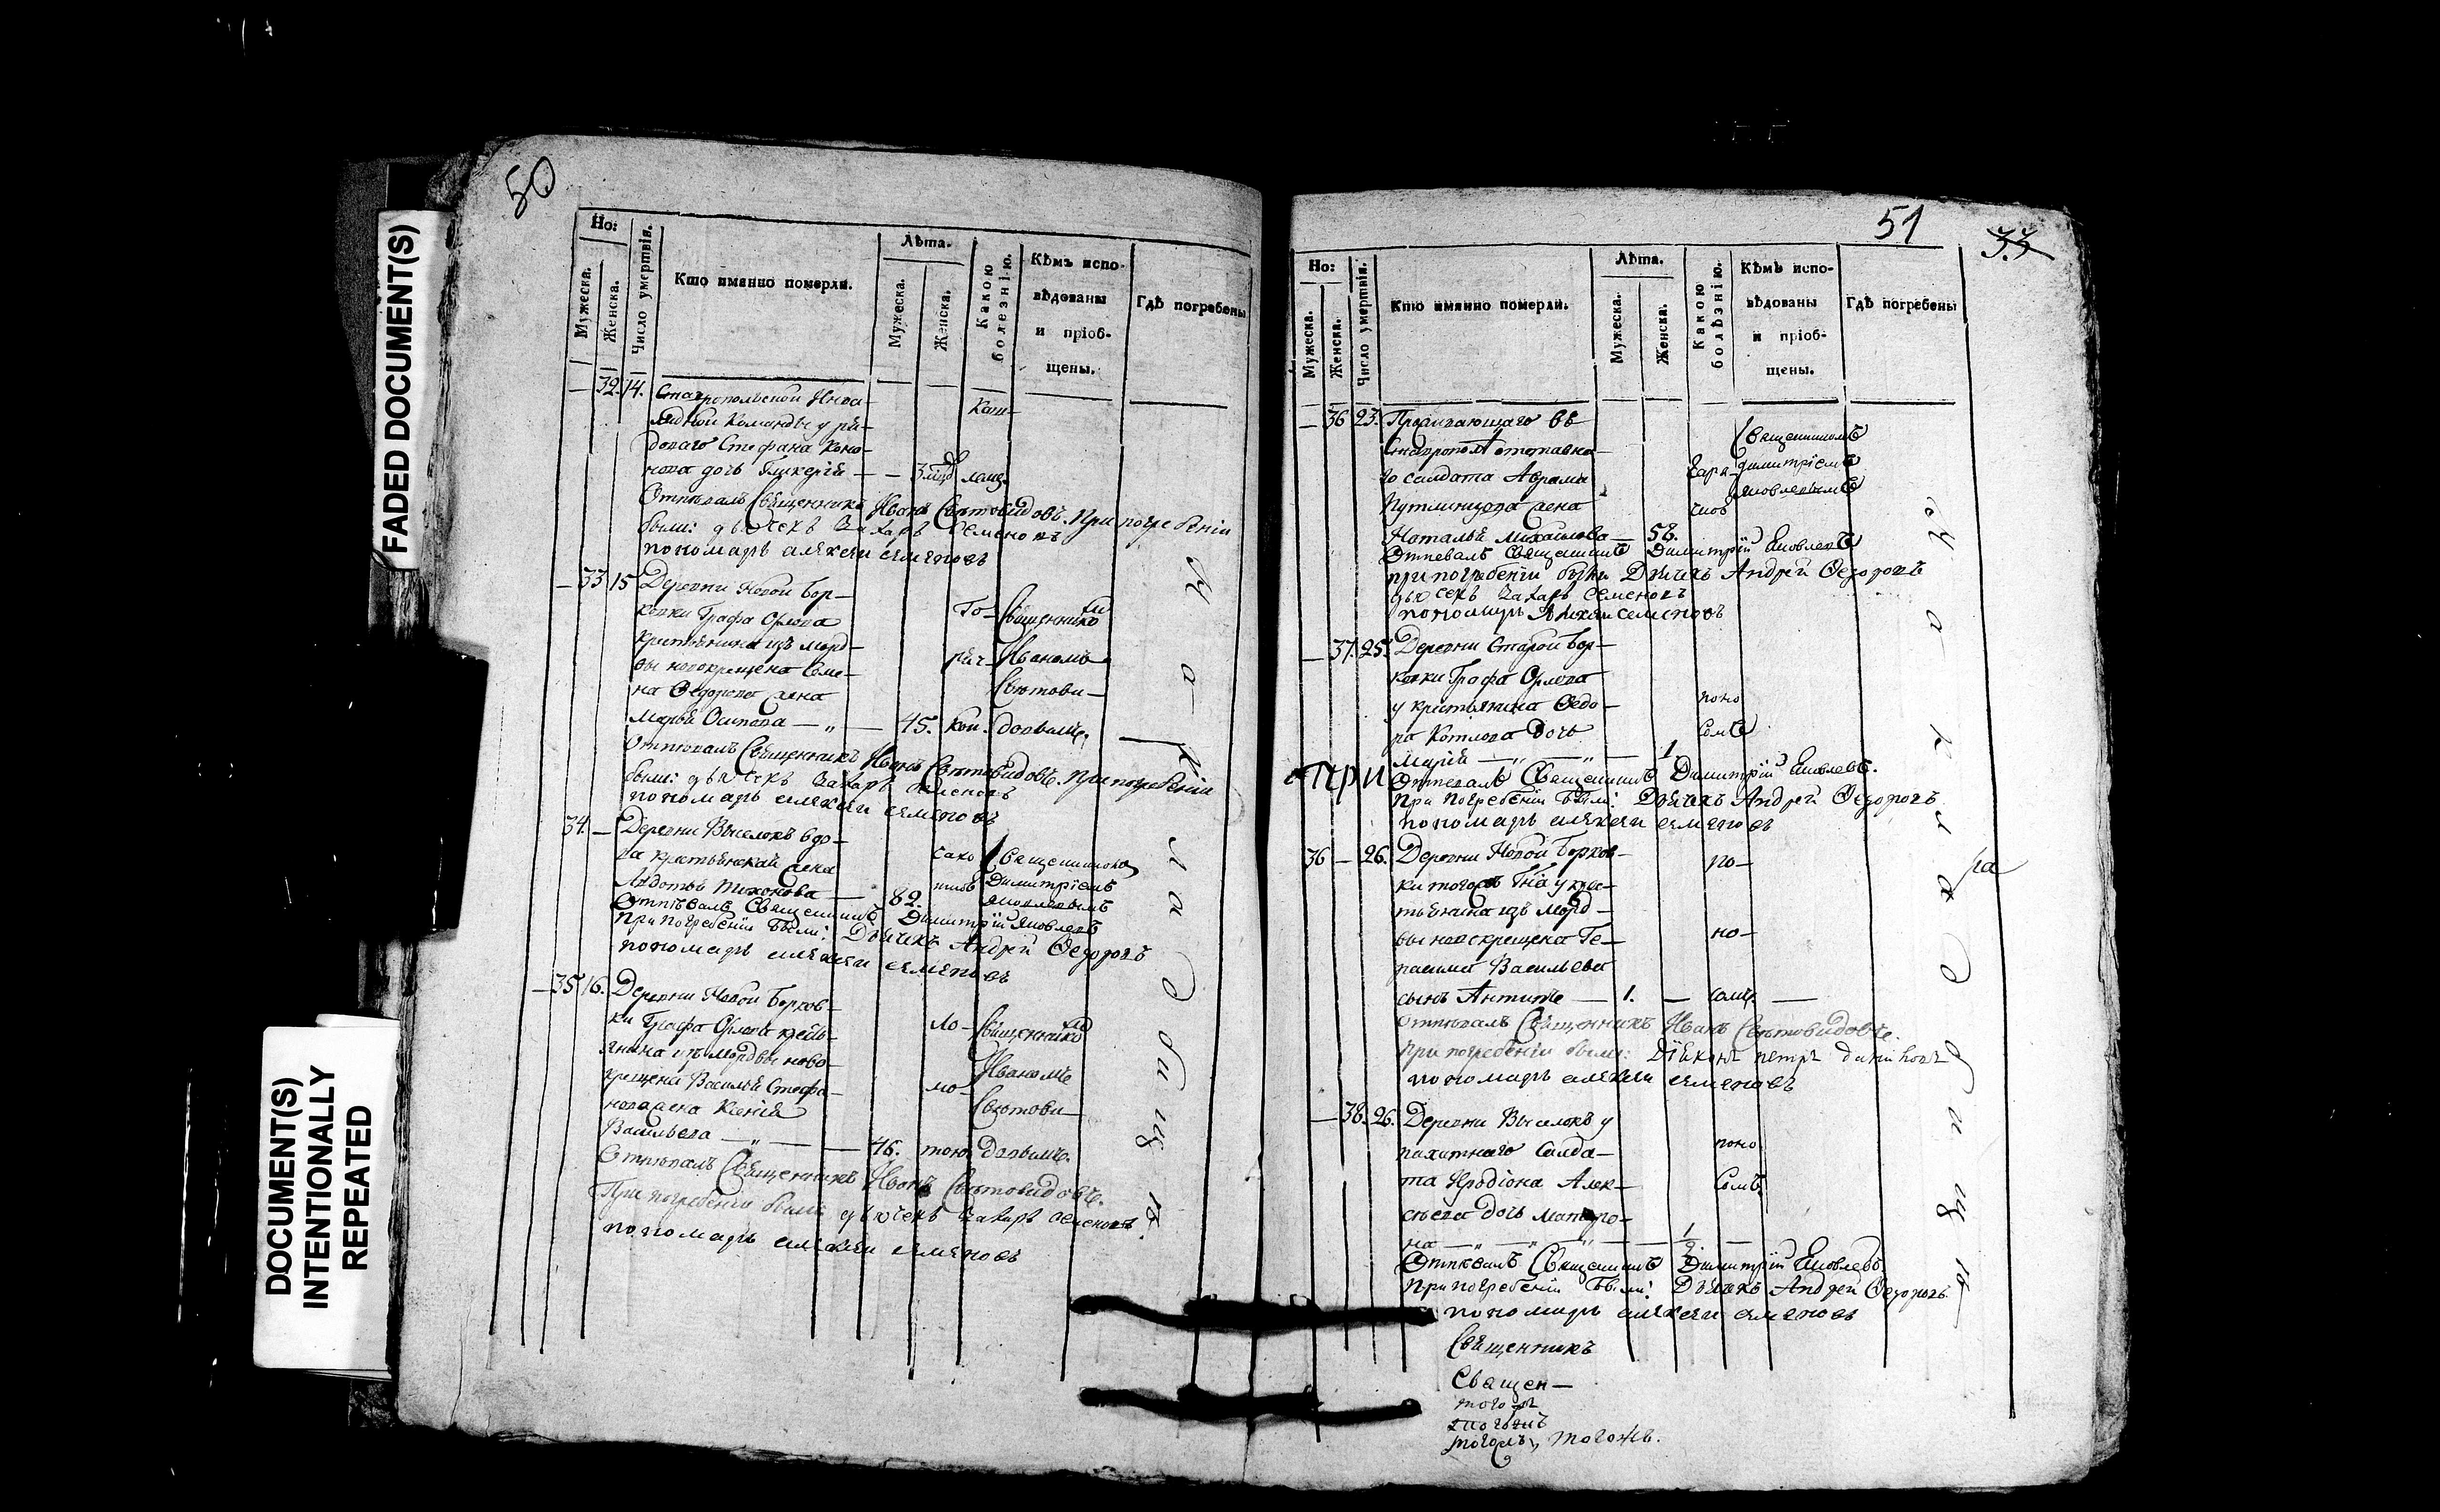 FADED DOCUMENT(S)
DOCUMENT(S)
INTENTIONALLY
REPEATED
50
Но:
Мужеска.
Женска.
Число умертвія.
Кто именно померли.
Лѣта.
Мужеска.
Женска.
Какою
болезнію.
Кѣмъ испо-
вѣдованы
и пріоб-
щены.
Гдѣ погребены
— 32. 14. Ставропольской Инва-
лидной Команды у ря-
доваго Стефана Коно-
нова дочь Гликерія — — 3 мцд
Каш-
лемъ.
Отпевалъ Священникъ Иванъ Святовидовъ. При погребеніи
были: дьячекъ Захаръ Семеновъ
пономарь алѣксѣи сѣмѣновъ
— 33 15 Деревни Новой Бор-
ковки Графа Орлова
крестьянина изъ морд-
вы новокрещена Семе-
на Федорова жена
Марья Осипова — „ — 45.
Го-
ряч-
кой.
Священнико
мъ
Иваномъ
Святови-
довымъ.
Отпевалъ Священникъ Иванъ Святовидовъ. При погребеніи
были: дьячекъ Захаръ Семеновъ
пономарь алѣксѣи сѣмѣновъ
34. — Деревни Выселокъ вдо-
ва крестьянская жена
Авдотья Тихонова — 82.
Священникомъ
Димитріемъ
Яковлевымъ
Отпѣвалъ Священникъ Димитрій Яковлевъ
При погребеніи были: Дьячекъ Андрей Федоровъ
пономарь алѣксѣи сѣмѣновъ
— 35 16. Деревни Новой Борков-
ки Графа Орлова кресть-
янина изъ мордвы ново-
крещена Василья Стефа-
нова жена Ксенія
Васильева — „ — — 46.
Ло-
мо-
тою.
Священнико
мъ
Иваномъ
Святови-
довымъ.
Отпевалъ Священникъ Иванъ Святовидовъ.
При погребеніи были дьячекъ Захаръ Семеновъ.
пономарь алѣксѣи сѣмѣновъ
51
33
Но:
Мужеска.
Женска.
Число умертвія.
Кто именно померли.
Лѣта.
Мужеска.
Женска.
Какою
болѣзнію.
Кѣмъ испо-
вѣдованы
и пріоб-
щены.
Гдѣ погребены
— 36 23. Проживающаго въ
Ставрополѣ отставна-
го салдата Аврама
жена
Наталья Михайлова — 58.
Священникомъ
Димитріемъ
Яковлевымъ
Отпевалъ Священникъ Димитрій Яковлевъ
при погребеніи были Дьячекъ Андрей Федоровъ
дьячекъ Захаръ Семеновъ
пономарь Алѣксѣи семеновъ
— 37. 25. Деревни Старой Бор-
ковки Графа Орлова
у крестьянина Федо-
ра Котлова дочь
Марія — „ — „ — 1.
поно
сомъ
При
Отпевалъ Священникъ Димитрій Яковлевъ.
При погребеніи были: Дьячекъ Андрей Федоровъ
пономарь алѣксѣи сѣмѣновъ
36 — 26. Деревни Новой Борков-
ки тогожъ Гна у крес-
тьянина изъ морд-
вы новокрещена Ге-
расима Васильева
сынъ Антипъ — 1. —
по-
но-
сомъ. —
Отпевалъ Священникъ Иванъ Святовидовъ.
При погребеніи были: Діяконъ петръ даниловъ
пономарь алѣксѣи сѣмѣновъ
— 38. 26. Деревни Выселокъ у
пахатнаго Салда-
та Иродіона Алек-
сѣева дочь Матро-
на — „ — „ — 1/2. —
поно
сомъ.
Отпѣвалъ Священникъ Димитрій Яковлевъ
При погребеніи были: Дьячекъ Андрей Федоровъ
пономарь алѣксѣи сѣмѣновъ
Священникъ
Священ-
тогожъ, тогожъ.